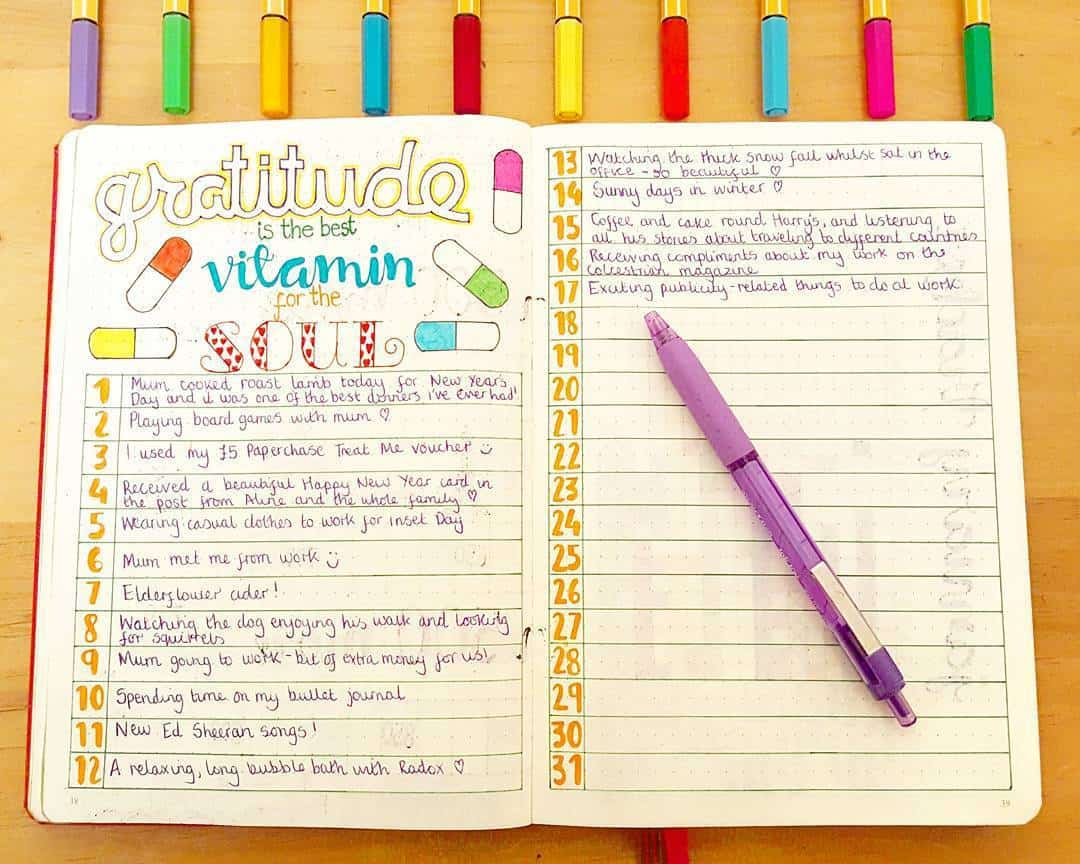 gratitude
is the best
vitamin
for the
SOUL
1 Mum cooked roast lamb today for New Year's
Day and it was one of the best dinners I've ever had!
2 Playing board games with mum ♡
3 I used my £5 Paperchase Treat Me voucher
4 Received a beautiful Happy New Year card in
the post from Aline and the whole family ♡
5 Wearing casual clothes to work for Inset Day
6 Mum met me from work
7 Elderflower cider!
8 Watching the dog enjoying his walk and looking
for squirrels
9 Mum going to work - bit of extra money for us!
10 Spending time on my bullet journal
11 New Ed Sheeran songs!
12 A relaxing, long bubble bath with Radox ♡
38
13 Watching the thick snow fall whilst sat in the
office - so beautiful ♡
14 Sunny days in winter ♡
15 Coffee and cake round Harry's, and listening to
all his stories about traveling to different countries
16 Receiving compliments about my work on the
colcestrian magazine
17 Exciting publicity-related things to do at work
18
19
20
21
22
23
24
25
26
27
28
29
30
31
39